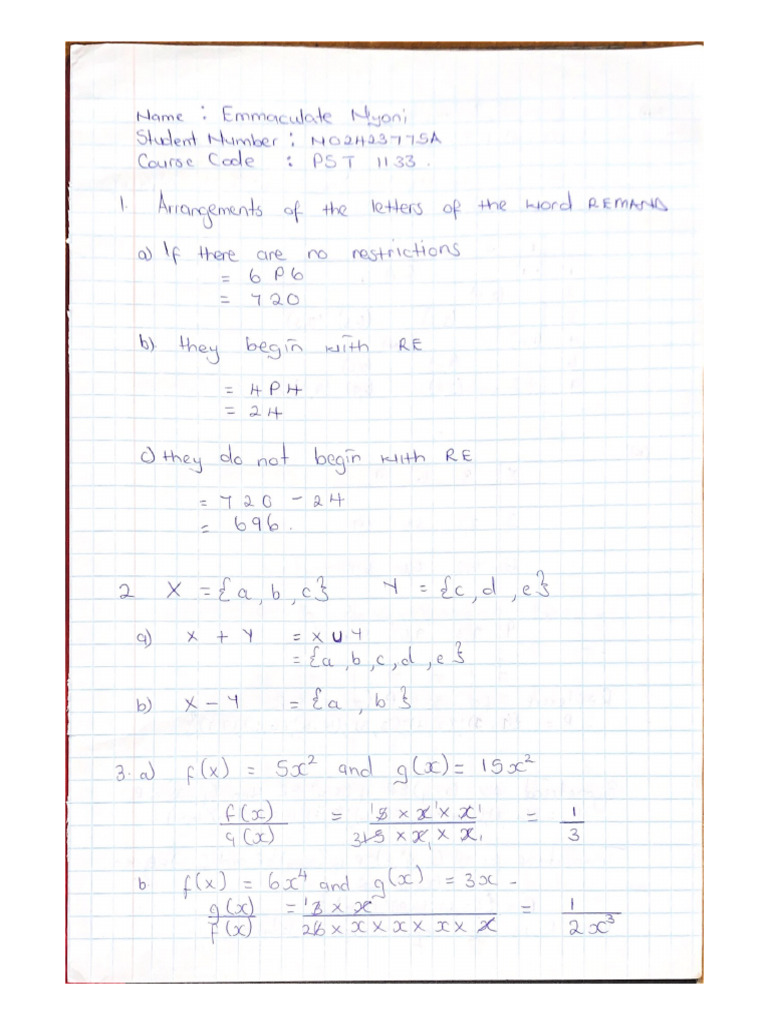 Name : Emmaculate Nyoni
Student Number : N02423775A
Course Code : PST 1133.
1. Arrangements of the letters of the word REMAND
a) If there are no restrictions
= 6P6
= 720
b) they begin with RE
= 4P4
= 24
c) they do not begin with RE
= 720 - 24
= 696.
2 X = {a, b, c} Y = {c, d, e}
a) X + Y = X U Y
= {a, b, c, d, e}
b) X - Y = {a, b}
3. a) f(x) = 5x² and g(x) = 15x²
f(x)/g(x) = 5 × x × x / 15 × x × x = 1/3
b f(x) = 6x⁴ and g(x) = 3x -
g(x)/f(x) = 3 × x / 6 × x × x × x × x = 1/2x³